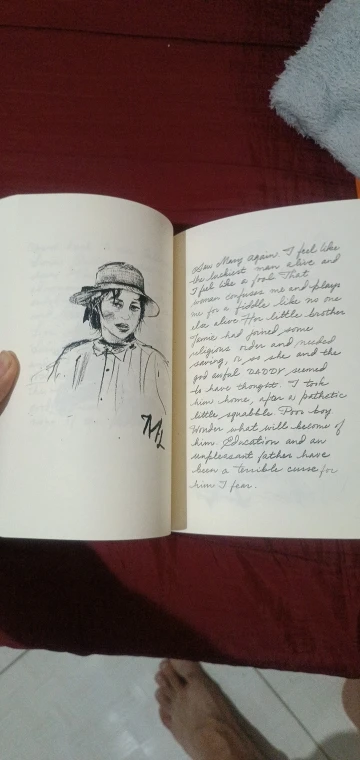 Saw Mary again I feel like
the luckiest man alive and
I feel like a fool That
woman confuses me and plays
me for a fiddle like no one
else alive Her little brother
Jamie had joined some
religious order and needed
saving, or so she and the
god awful DADDY, seemed
to have thought. I took
him home, after a pathetic
little squabble. Poor boy
Wonder what will become of
him. Education and an
unpleasant father have
been a terrible curse for
him I fear.